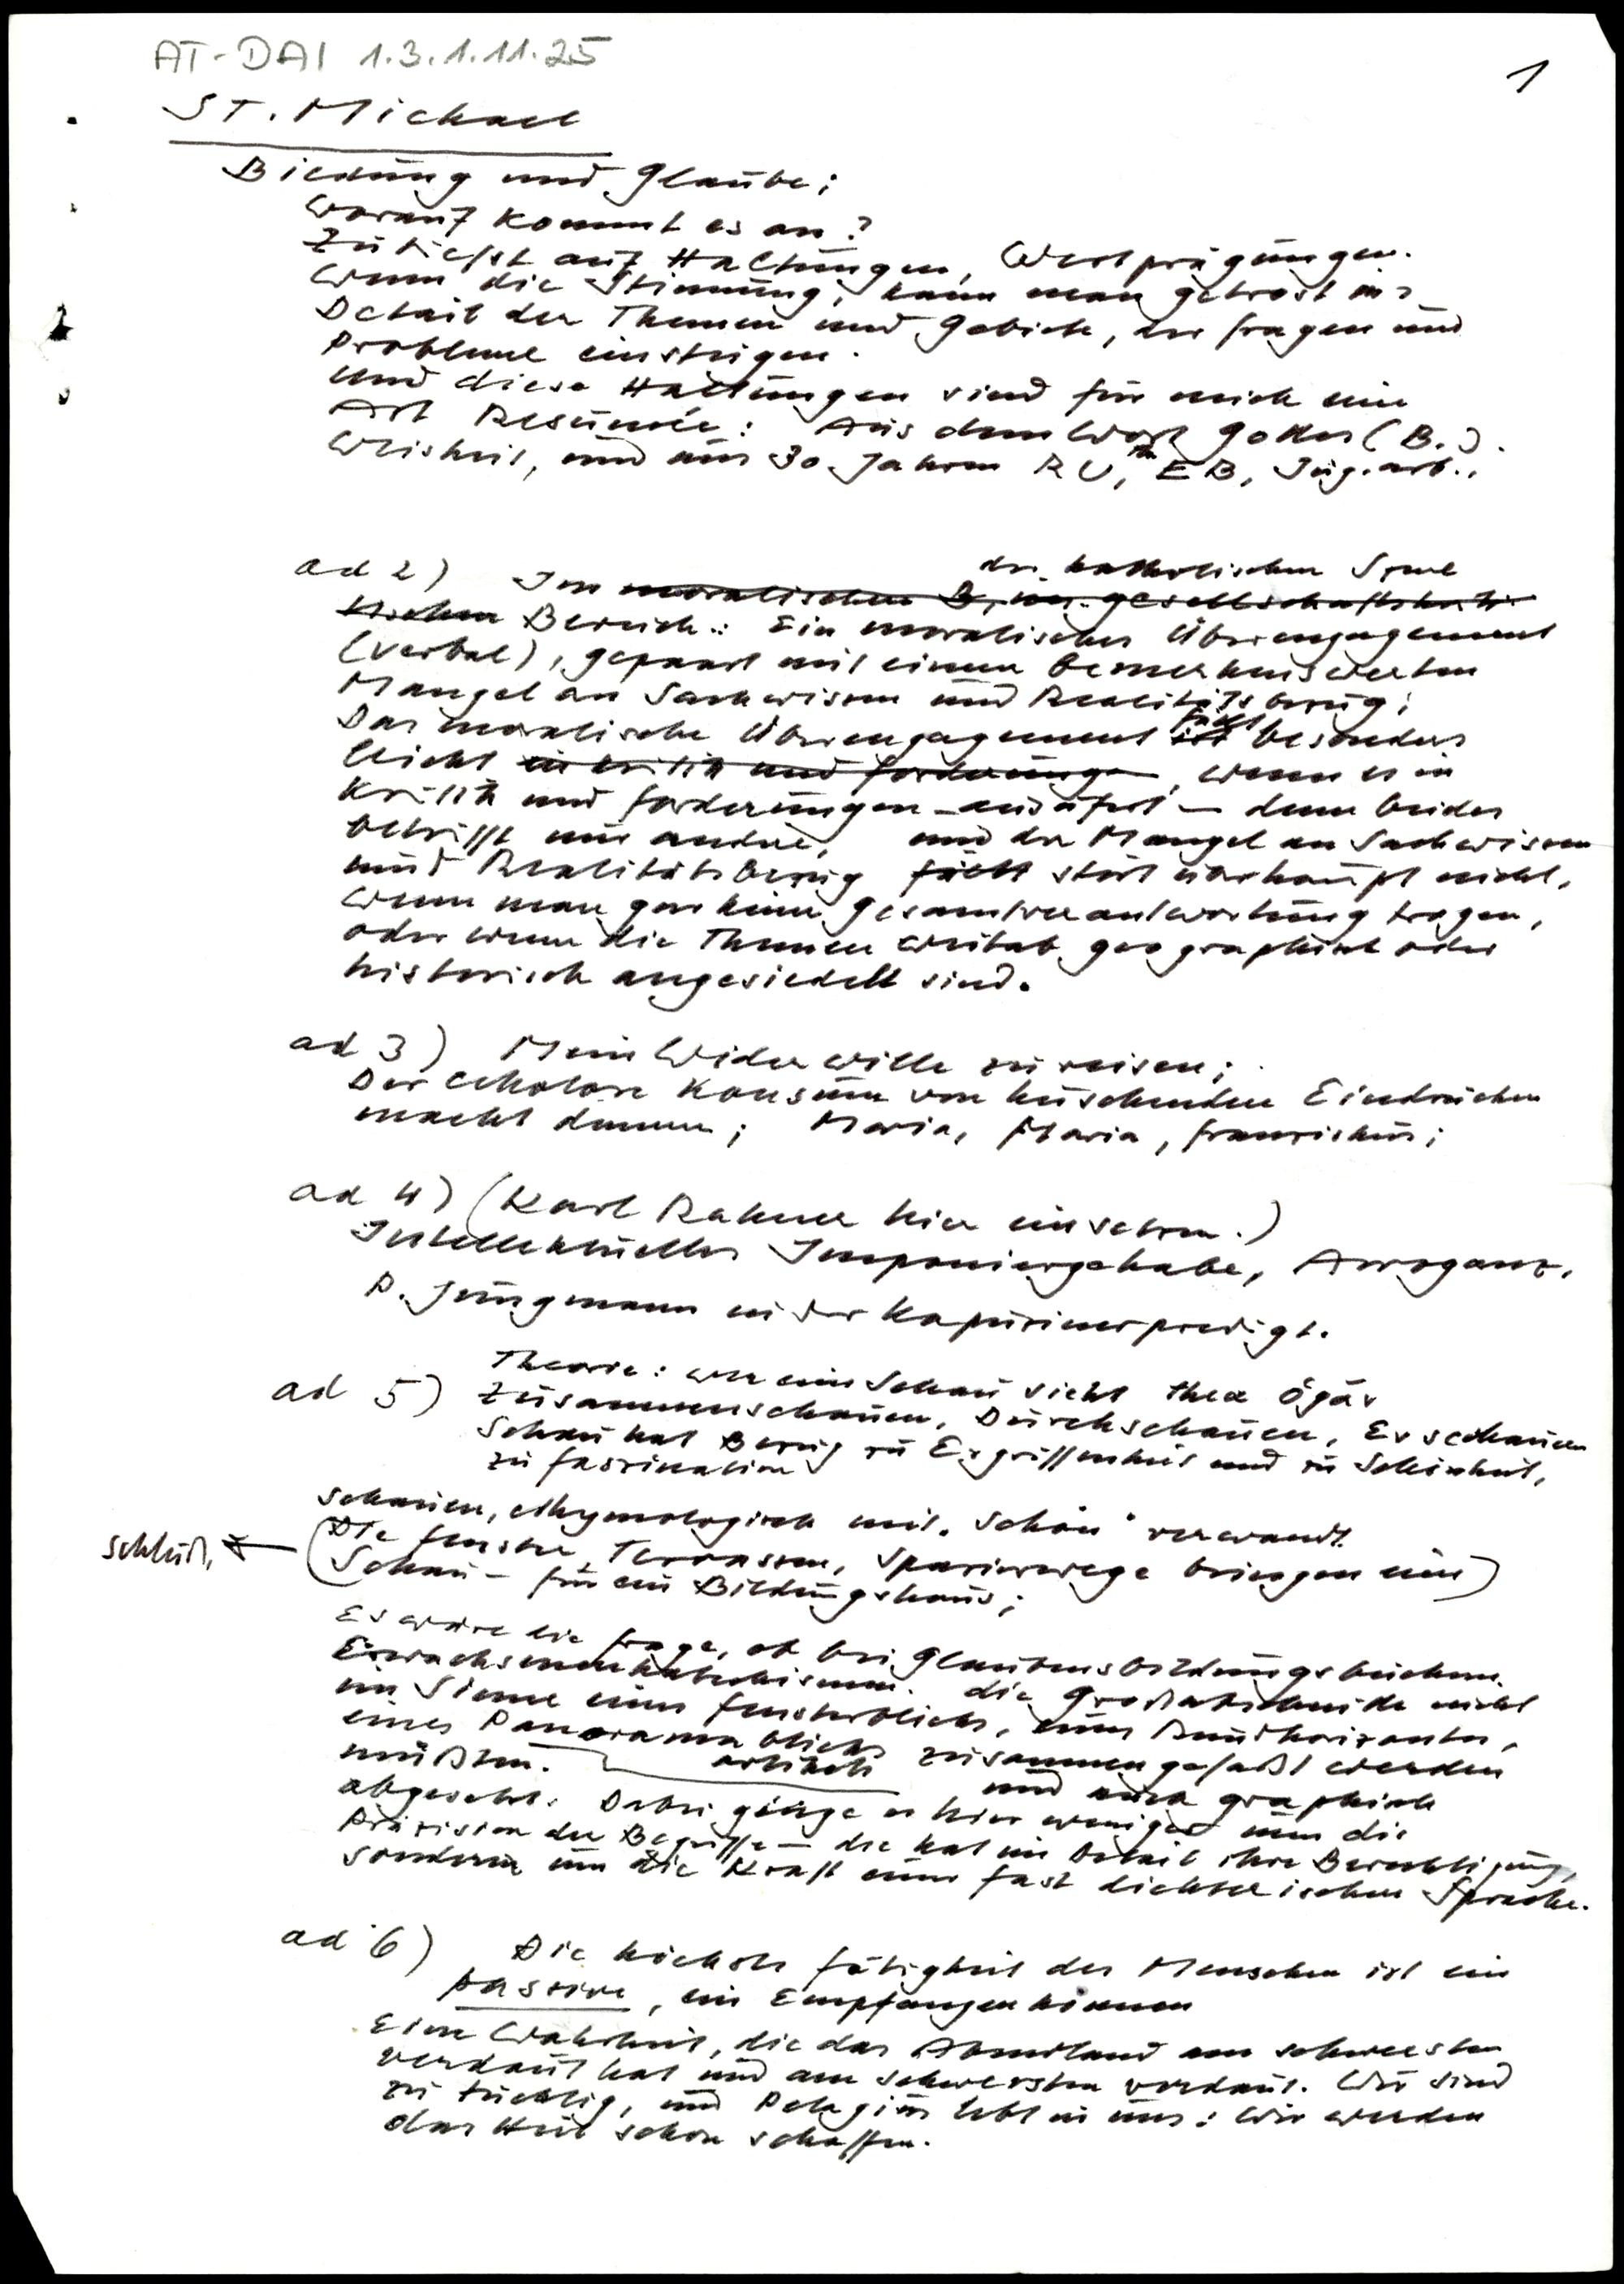 AT-DAI 1.3.1.11.25
1
ST. Michael
Bildung und Glaube;
Worauf kommt es an?
Zutiefst auf Haltungen, Wertprägungen.
Wenn die Stimmung, kann man getrost ins
Detail der Themen und Gebiete, der Fragen und
Probleme einsteigen.
Und diese Haltungen sind für mich eine
Art Resumée: Aus dem Wort Gottes (B.).
Weisheit, und aus 30 Jahren RU, EB, Jug.arb.,
der katholischen Szene
ad 2) Im moralischen B, gesellschaftskriti-
schen Bereich: Ein moralisches Überengagement
(verbal), gepaart mit einem bemerkenswerten
Mangel an Sachwissen und Realitätsbezug;
fällt
Das moralische Überengagement ist besonders
leicht in Kritik und Forderungen, wenn es in
Kritik und Forderungen ausufert – denn beides
betrifft nur andre, und der Mangel an Sachwissen
und Realitätsbezug fällt stört überhaupt nicht,
wenn man gar keine Gesamtverantwortung tragen,
oder wenn die Themen weitab geographisch oder
historisch angesiedelt sind.
ad 3) Mein Widerwille zu reisen;
Der Konsum von huschenden Eindrücken
macht dumm; Maria, Maria, Franziskus;
ad 4) (Karl Rahner hier einsetzen.)
Intellektuelles Imponiergehabe, Arroganz,
P. Jungmann in der Kapuzinerpredigt.
Theorie: wer eine Schau sieht
ad 5) Zusammenschauen, Durchschauen, Erschauen
Schau hat Bezug zu Ergriffenheit und zu Schönheit,
zu Faszination
schauen, ethymologisch mit "schön" verwandt
Schluß, (Die Fenster, Terrassen, Spazierwege bringen eine)
Schau – für ein Bildungshaus;
Es wäre die Frage, ob bei Glaubensbildungsbüchern.
Erwachsenenkatechismen die Großabschnitte nicht
im Sinne eines Fensterblicks, eines Rundhorizontes,
eines Panoramablicks zusammengefaßt werden
müßten. und auch graphisch
abgesetzt. Dabei ginge es hier weniger um die
Präzision der Begriffe – die hat im Detail ihre Berechtigung,
sondern um die Kraft einer fast dichterischen Sprache.
ad 6) Die höchste Fähigkeit des Menschen ist eine
passive, ein Empfangenkönnen
Eine Wahrheit, die das Abendland am schwersten
verdaut hat und am schwersten verdaut. Wir sind
zu tüchtig, und Pelagius lebt in uns: Wir werden
das Heil schon schaffen.